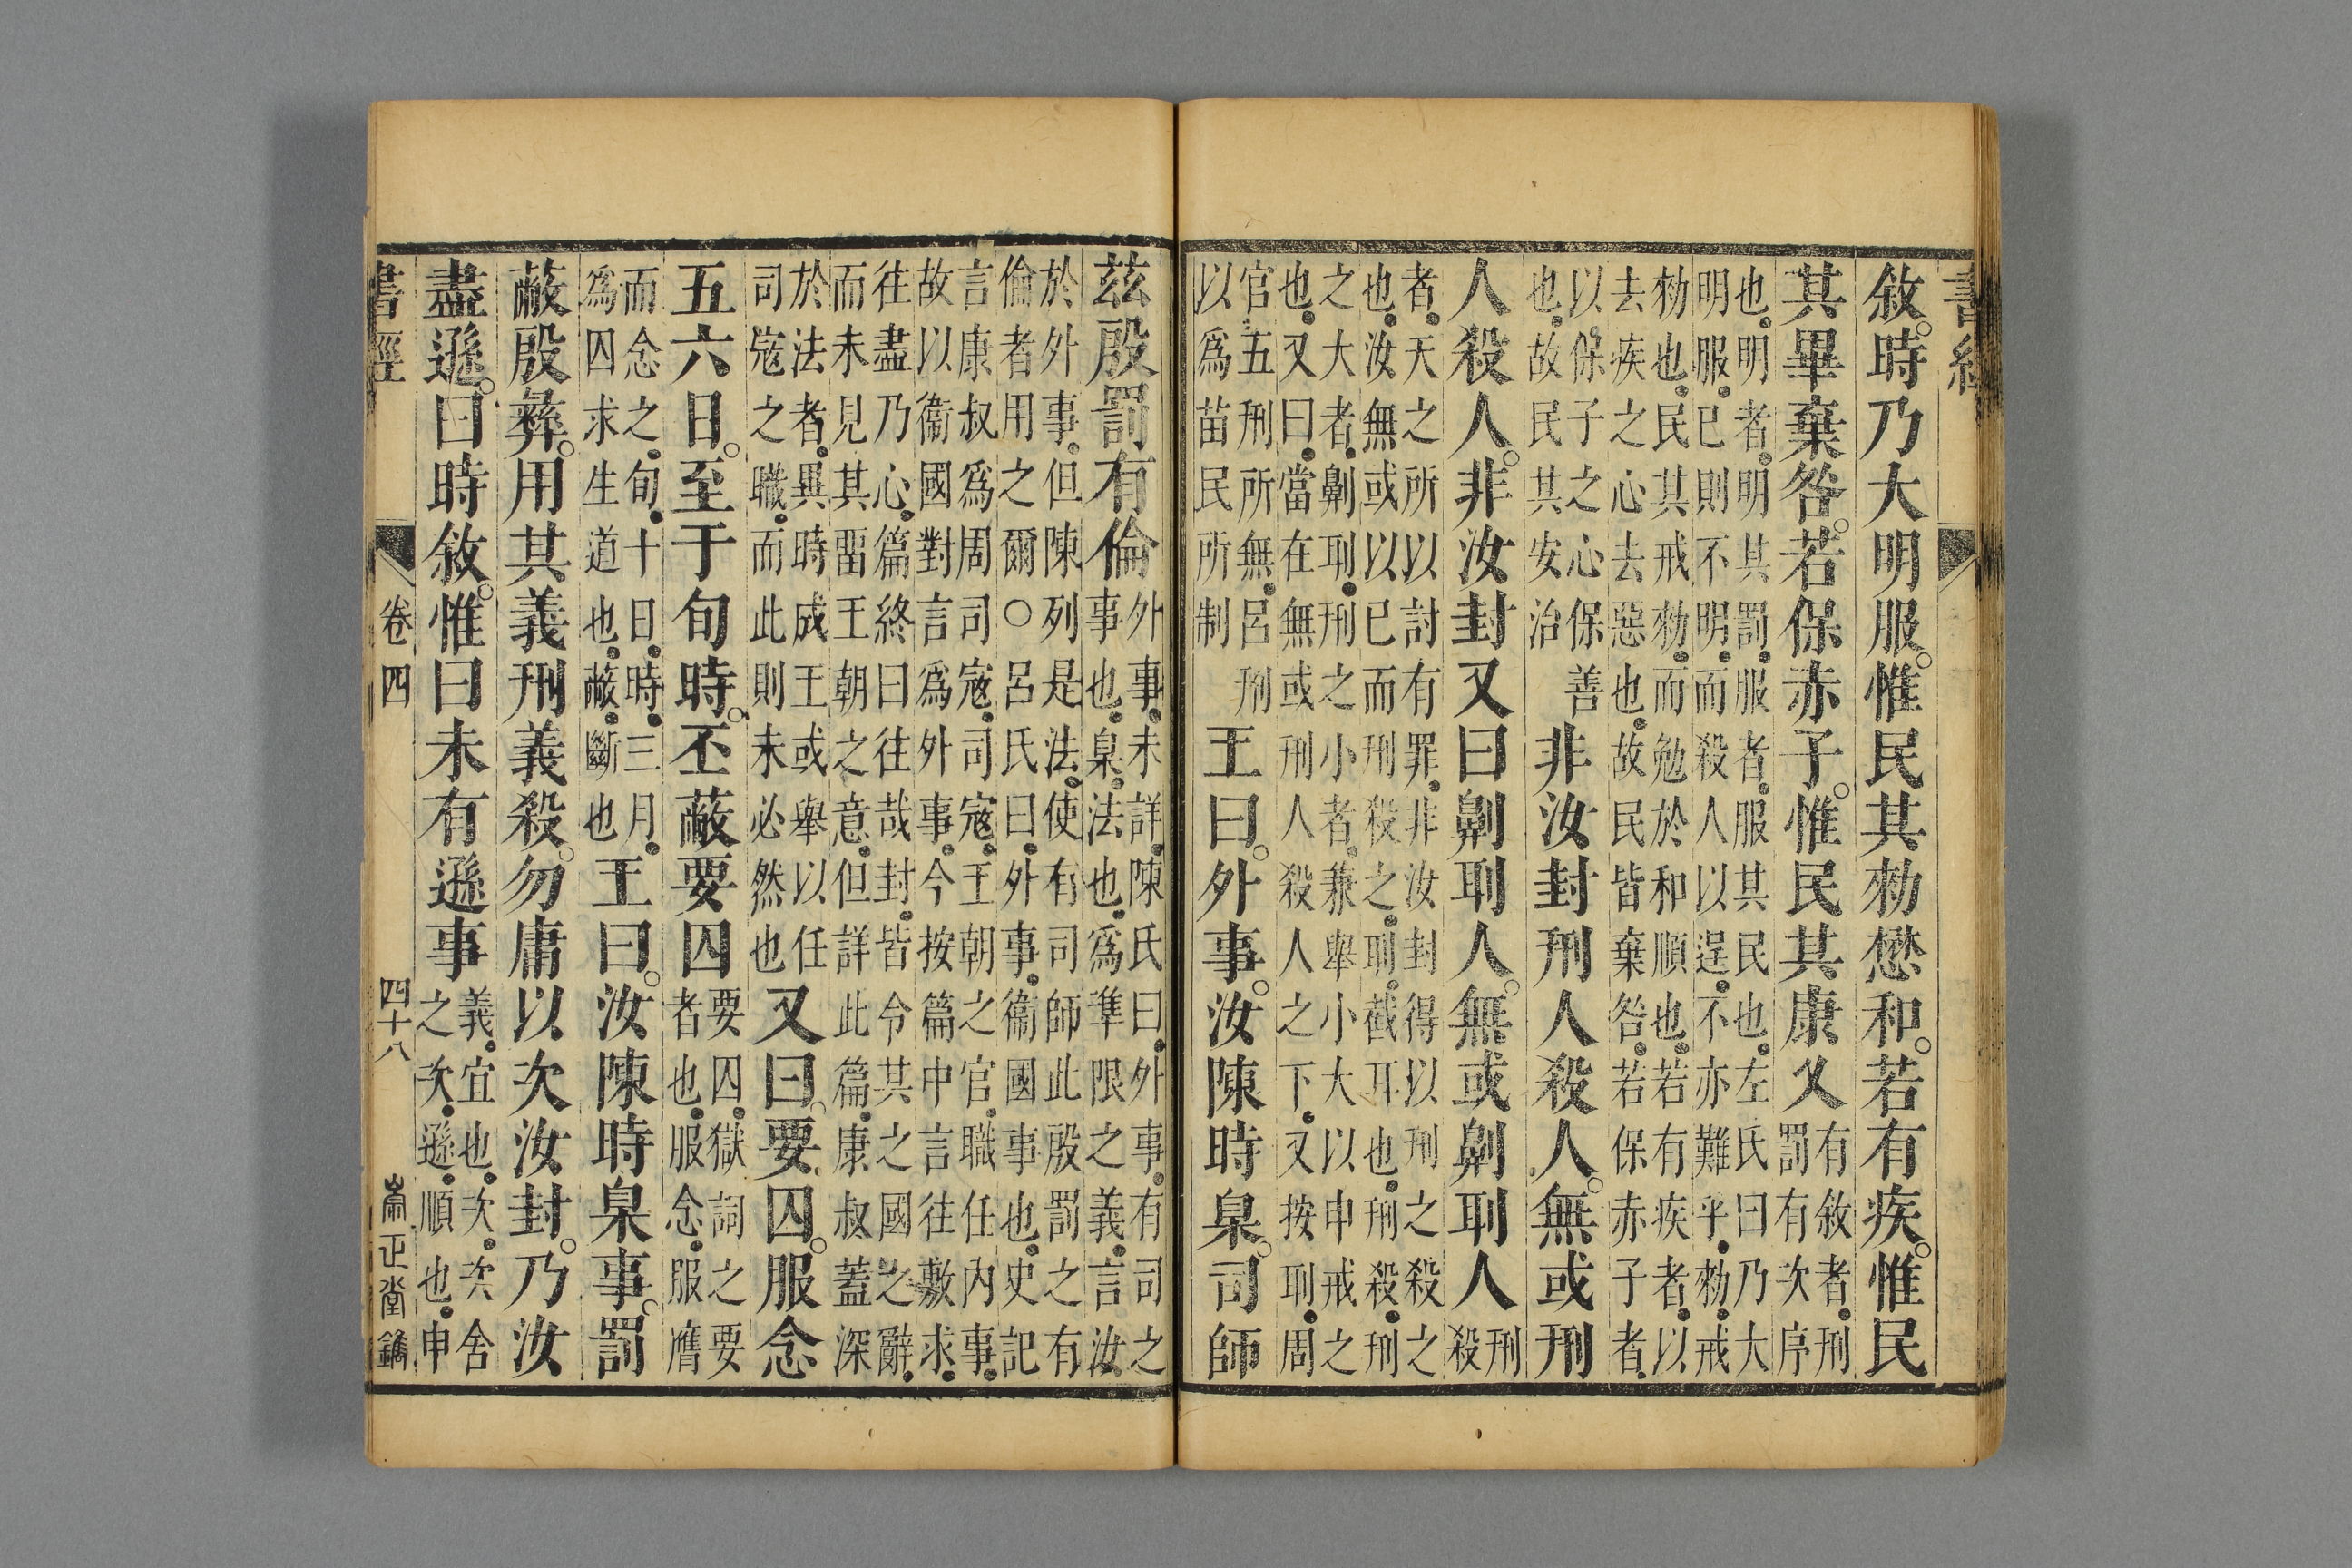 書經
敘。時乃大明服。惟民其勑懋和。若有疾。惟民
其畢棄咎。若保赤子。惟民其康乂
有敘者。刑
罰有次序
也。明者。明其罰。服者。服其民也。左氏曰乃大
明服。已則不明。而殺人以逞。不亦難乎。勑。戒
勑也。民其戒勑。而勉於和順也。若有疾者。以
去疾之心去惡也。故民皆棄咎。若保赤子者。
以保子之心保善
也。故民其安治
非汝封刑人殺人。無或刑
人殺人。非汝封又曰劓刵人。無或劓刵人
刑
殺
者。天之所以討有罪。非汝封得以刑之殺之
也。汝無或以已而刑殺之。刵。截耳也。刑殺。刑
之大者。劓刵。刑之小者。兼舉小大以申戒之
也。又曰。當在無或刑人殺人之下。又按刵。周
官五刑所無。呂刑
以爲苗民所制
王曰。外事。汝陳時臬。司師
茲殷罰有倫
外事。未詳。陳氏曰。外事。有司之
事也。臬。法也。爲準限之義。言汝
於外事。但陳列是法。使有司師此殷罰之有
倫者用之爾○呂氏曰。外事。衞國事也。史記
言康叔爲周司寇。司寇。王朝之官。職任內事。
故以衞國對言爲外事。今按篇中言往敷求。
往盡乃心。篇終曰往哉封。皆令其之國之辭。
而未見其畱王朝之意。但詳此篇。康叔蓋深
於法者。異時成王或舉以任
司寇之職。而此則未必然也
又曰。要囚。服念
五六日。至于旬時。丕蔽要囚
要囚。獄詞之要
者也。服念。服膺
而念之。旬。十日。時。三月。
爲囚求生道也。蔽。斷也
王曰。汝陳時臬事。罰
蔽殷彝。用其義刑義殺。勿庸以次汝封。乃汝
盡遜。曰時敘。惟曰未有遜事
義。宜也。次。次舍
之次。遜。順也。申
書經 卷四 四十八 崇正堂鐫